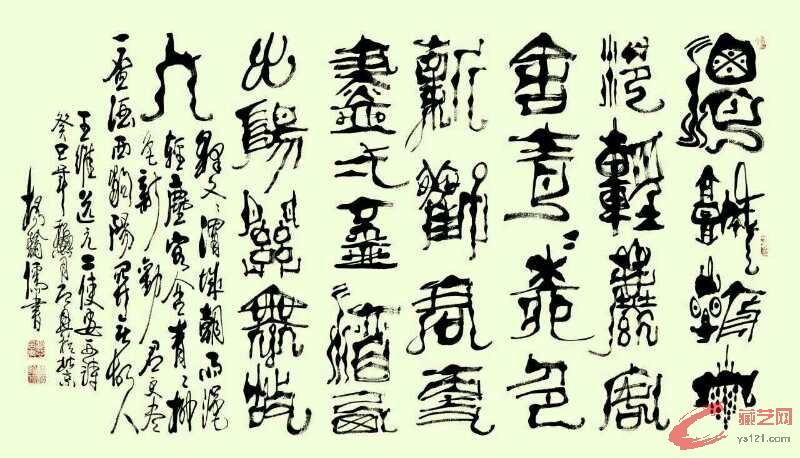 渭城朝雨
浥輕塵客
舍青々柳色
新勸君更
盡弌盃酒西
出陽關無故
人
釋文：渭城朝雨浥
輕塵客舍青々柳
色新勸君更盡
一盃酒西出陽關無故人
王維送元二使安西詩
癸巳年
儒書
藏艺网
ys121.com